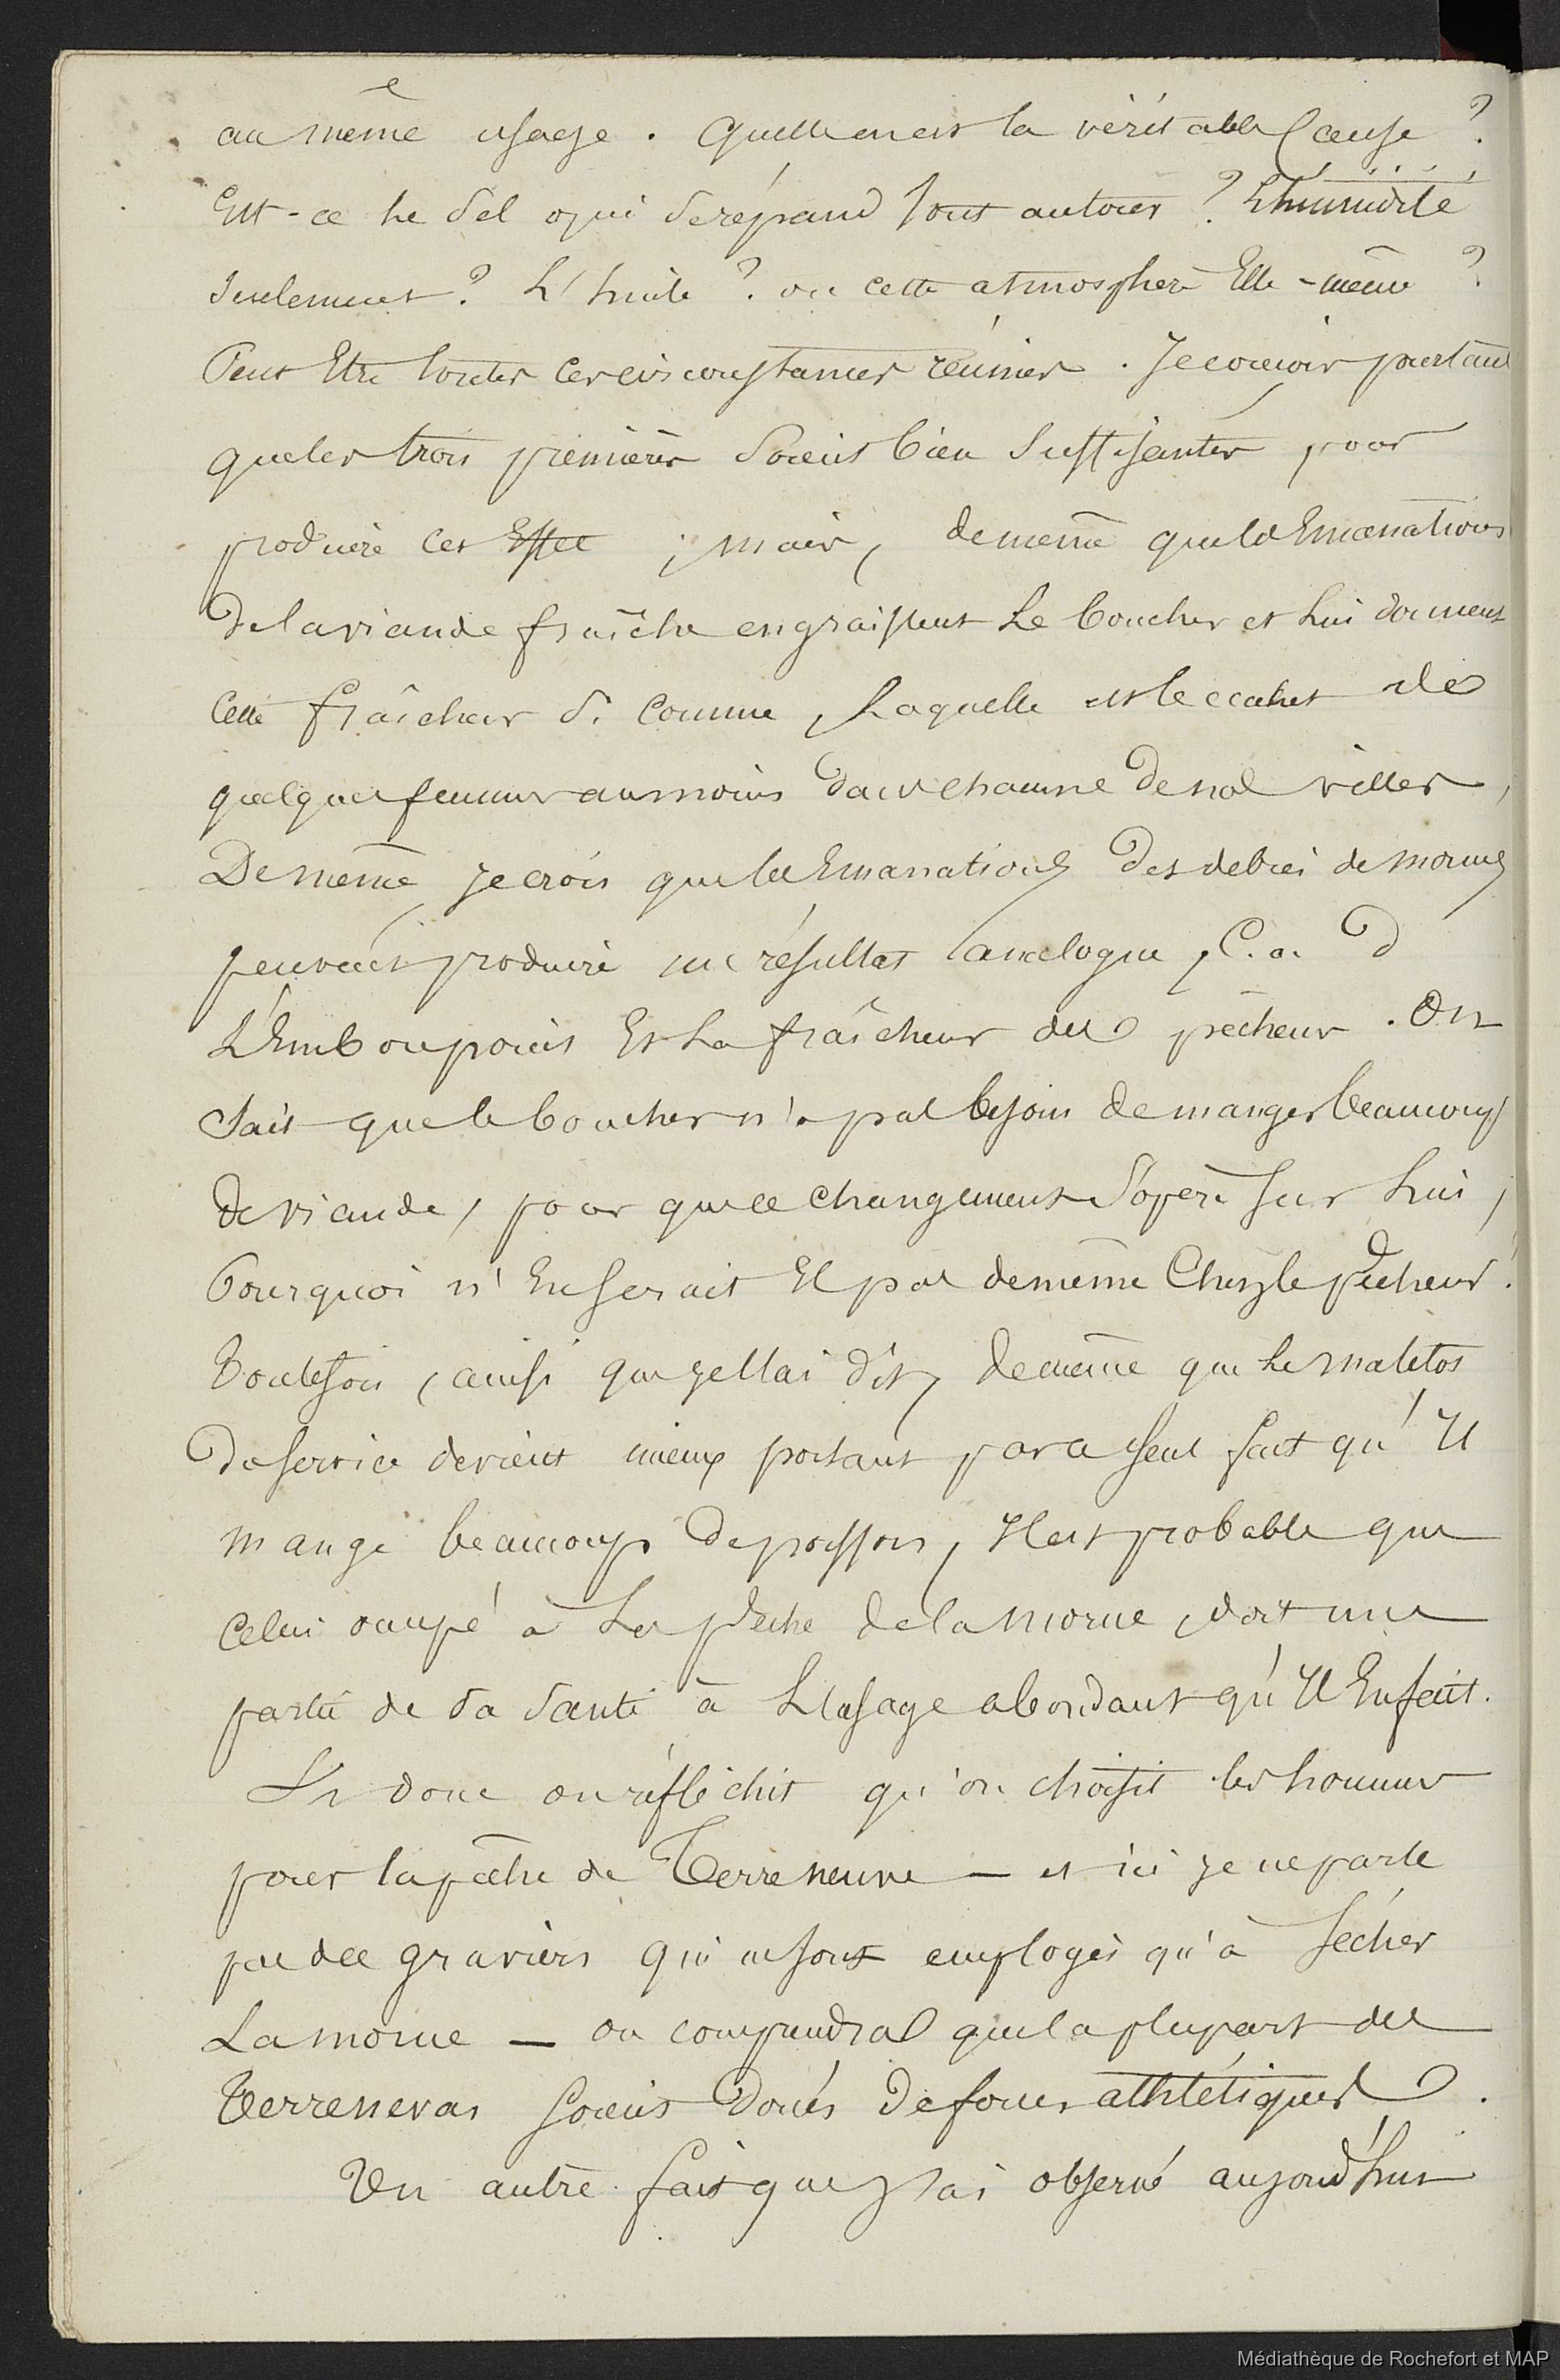 au même usage. Quelle en est la véritable Cause ?
Est-ce le sel qui se répand tout autour ? L'humidité
seulement ? L'huile ? ou cette atmosphère Elle-même ?
Peut Etre toutes ces circonstances réunies. Je conçois pourtant
que les trois premières soient bien suffisantes pour
produire ces Effet ; mais, de même que les Emanations
de la viande fraîche engraissent le boucher et lui donnent
cette fraîcheur si connue, laquelle est le cachet de
quelques femmes au moins dans chacune de nos villes,
De même je crois que les Emanations des debris de morues
peuvent produire un résultat analogue, C. a. D
L'Embonpoint Et la fraîcheur des pêcheurs. On
sait que le boucher n'a pas besoin de manger beaucoup
de viande, pour que ce changement s'opère sur lui,
Pourquoi n'En serait Il pas de même Chez le pêcheur ?
Toutefois, ainsi que je l'ai dit, de même que le matelot
du service devient mieux portant par ce seul fait qu'Il
mange beaucoup de poisson, Il est probable que
celui occupé à la pêche de la morue, doit une
partie de sa santé à l'usage abondant qu'Il En fait.
Si donc on réfléchit qu'on choisit les hommes
pour la pêche de Terreneuve — et ici je ne parle
pas des graviers qui ne sont employés qu'à sécher
La morue — on comprendra que la plupart des
Terrenevas soient doués de forces athlétiques.
Un autre fait que j'ai observé aujourd'hui
Médiathèque de Rochefort et MAP